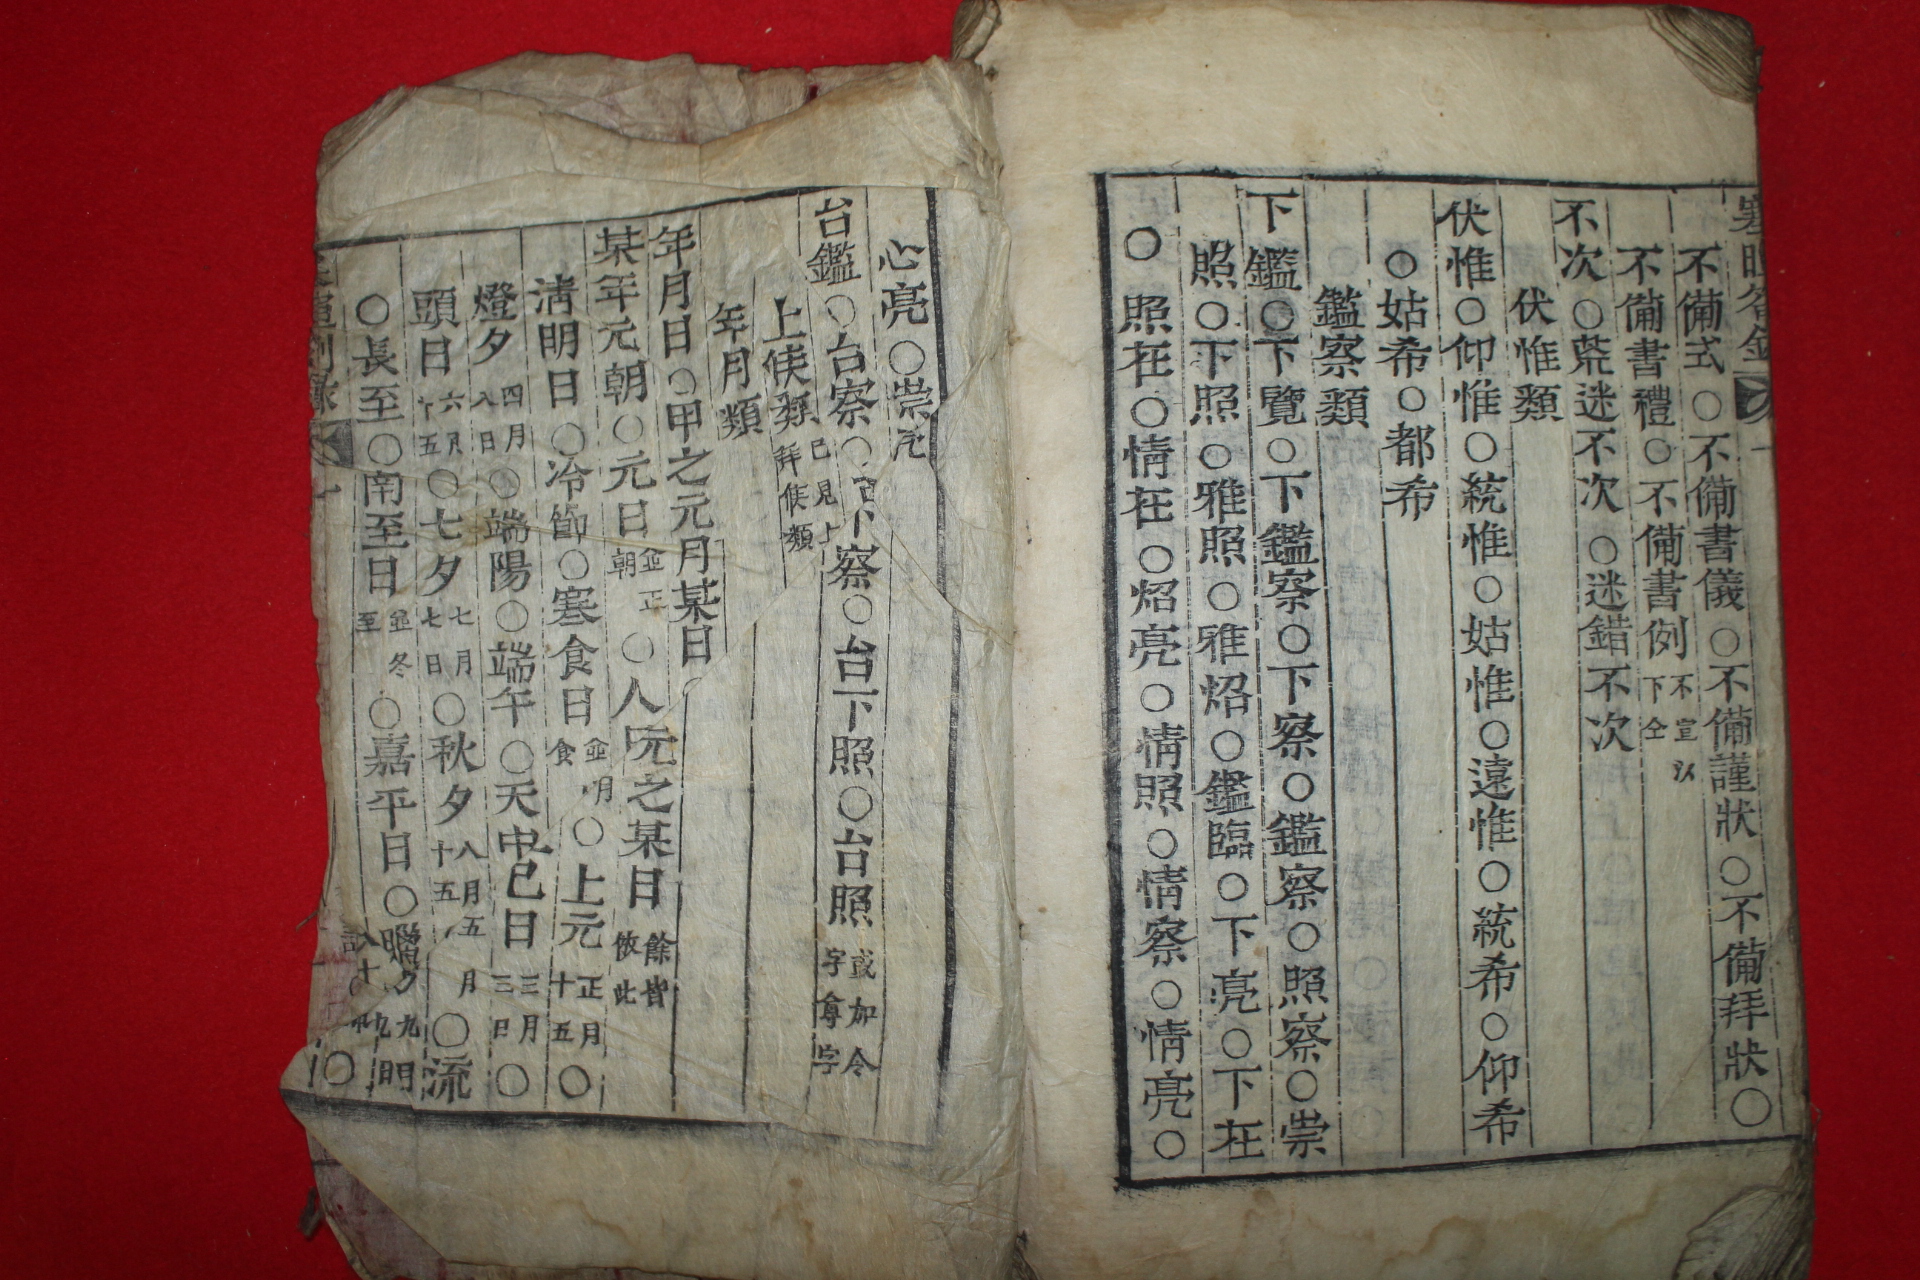 不備式○不備書儀○不備謹狀○不備拜狀○
不備書禮○不備書例不宣以下仝
不次○荒迷不次○迷錯不次
伏惟類
伏惟○仰惟○統惟○姑惟○遠惟○統希○仰希
○姑希○都希
鑑察類
下鑑○下覽○下鑑察○下察○鑑察○照察○崇
照○下照○雅照○雅炤○鑑臨○下亮○下在
○照在○情在○炤亮○情照○情察○情亮○
心亮○崇亮
台鑑○台察○台下察○台下照○台照或如令字尊字
上候類已見上拜候類
年月類
年月日○甲之元月某日
某年元朝○元日並正朝○人日元之某日餘皆依此
清明日○冷節○寒食日並明食○上元正月十五○
燈夕四月八日○端陽○端午○天中已日三月三日○
頭日六月十五○七夕七月七日○秋夕八月十五○流
○長至○南至日並冬至○嘉平日○臘夕